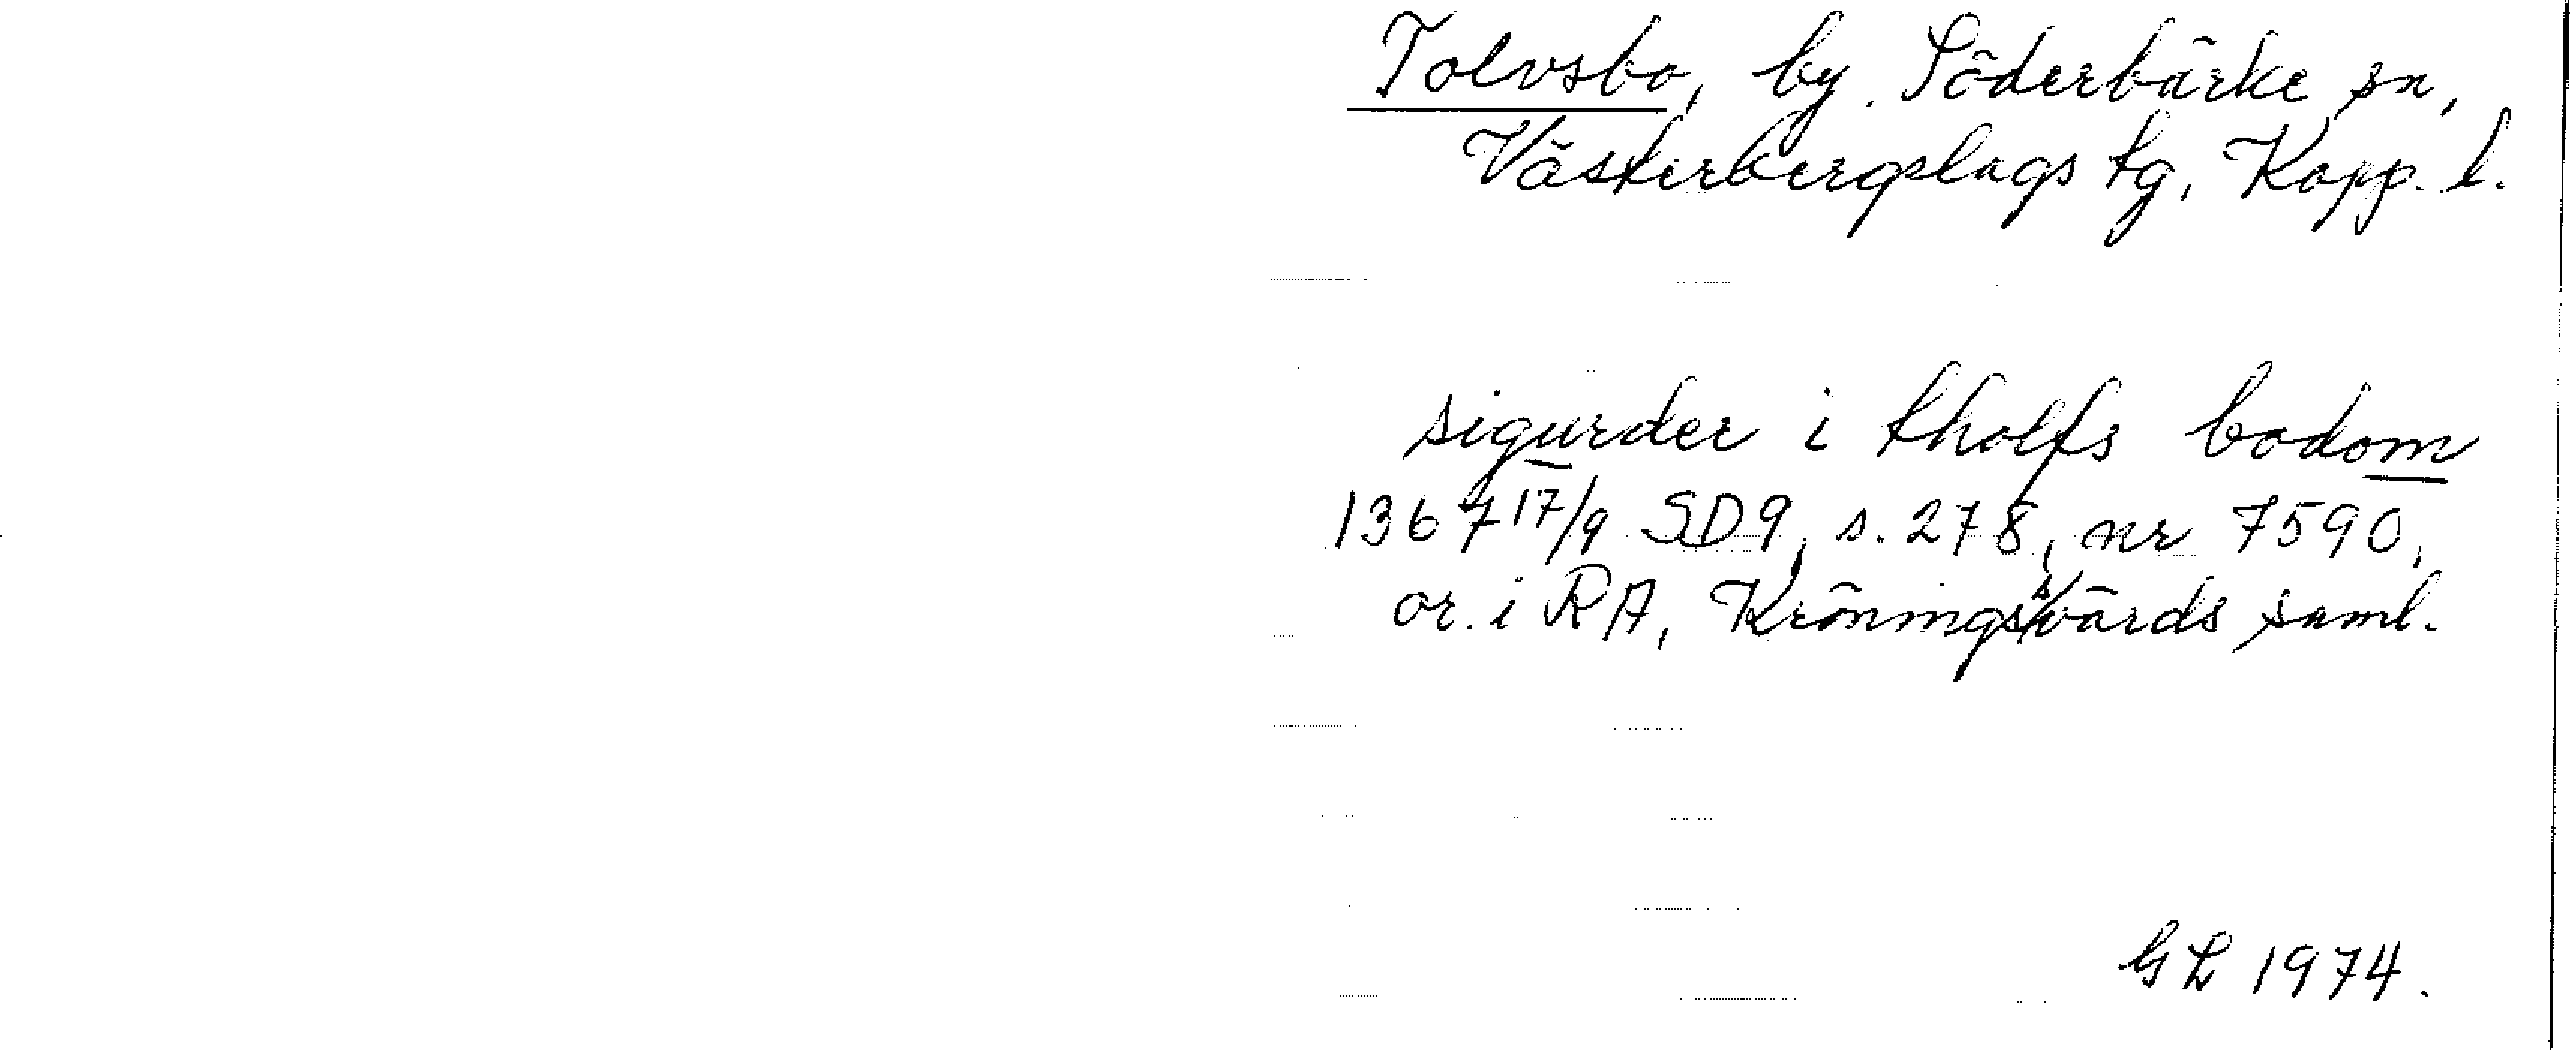 Tolvsbo, by. Söderbärke sn,
Västerbergslags tg, Kopp. l.
sigurder i tholfs bodom
1367 17/9 SD9, s. 278, nr 7590,
or. i RA, Kröningsvärds saml.
GL 1974.